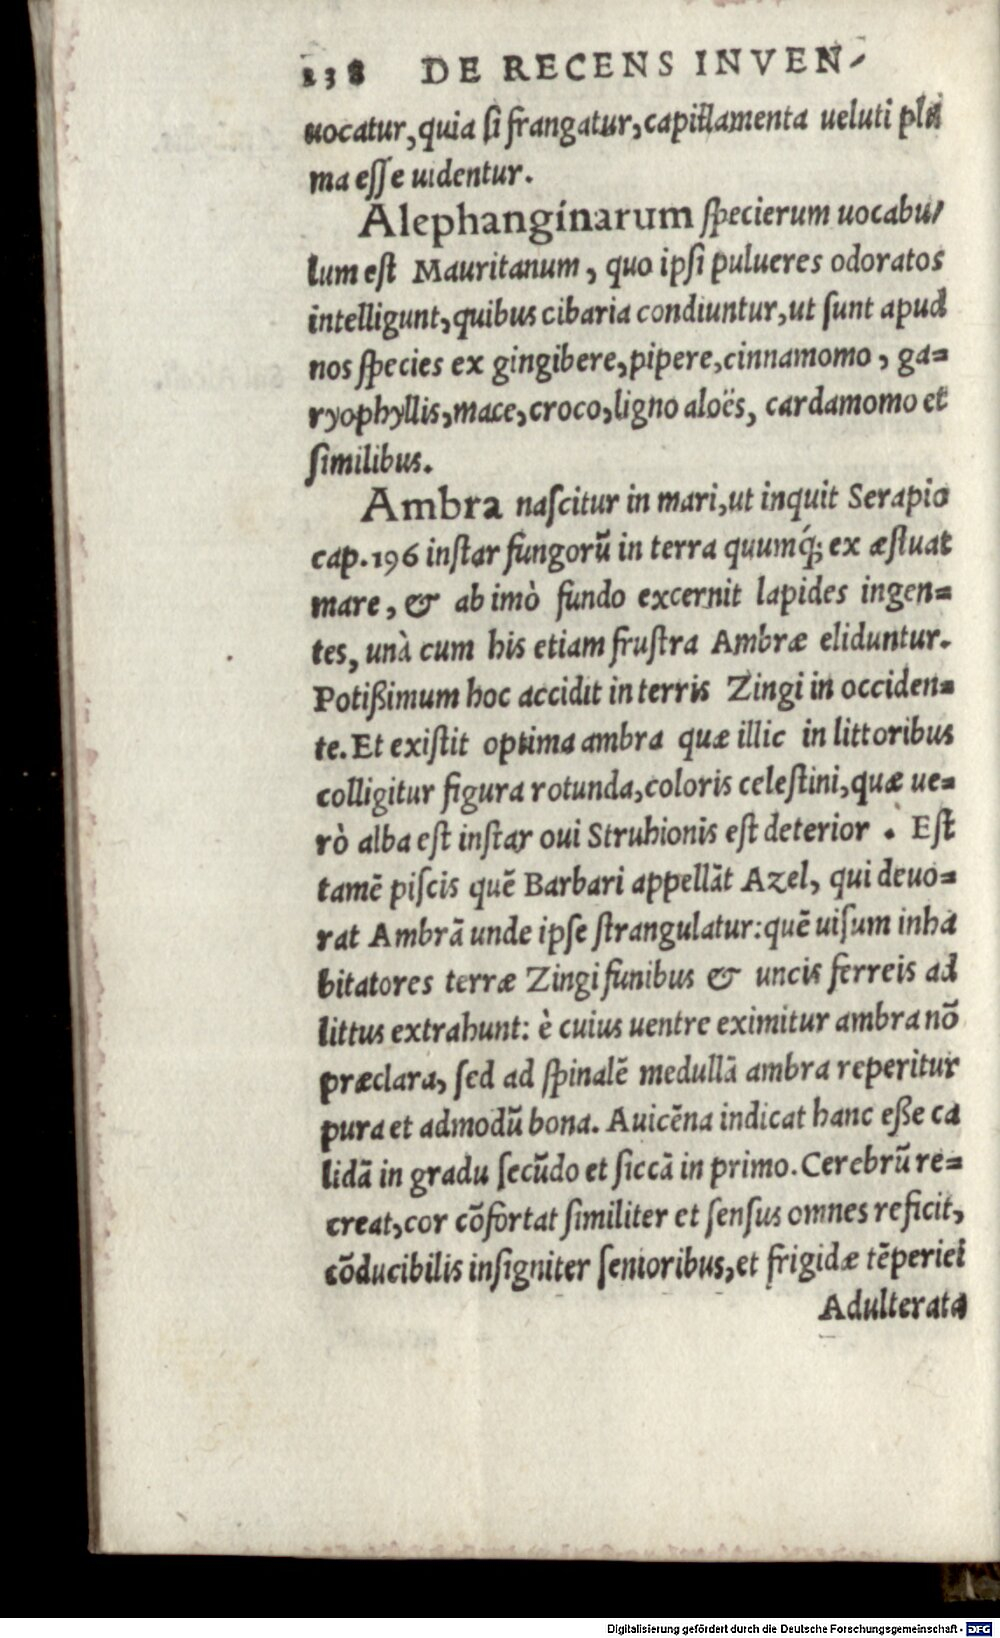 238 DE RECENS INVEN-
uocatur, quia si frangatur, capillamenta ueluti plu
ma esse uidentur.
Alephangínarum specierum uocabu/
lum est Mauritanum, quo ipsi pulueres odoratos
intelligunt, quibus cibaria condiuntur, ut sunt apud
nos species ex gingibere, pipere, cinnamomo, ga=
ryophyllis, mace, croco, ligno aloës, cardamomo et
similibus.
Ambra nascitur in mari, ut inquit Serapio
cap. 196 instar fungorũ in terra quumq́; ex æstuat
mare, & ab imò fundo excernit lapides ingen=
tes, unà cum his etiam frustra Ambræ eliduntur.
Potißimum hoc accidit in terris Zingi in occiden=
te. Et existit optima ambra quæ illic in littoribus
colligitur figura rotunda, coloris celestini, quæ ue=
rò alba est instar oui Struhionis est deterior. Est
tamẽ piscis quẽ Barbari appellãt Azel, qui deuo=
rat Ambrã unde ipse strangulatur: quẽ uisum inha
bitatores terræ Zingi funibus & uncis ferreis ad
littus extrahunt: è cuius uentre eximitur ambra nõ
præclara, sed ad spinalẽ medullã ambra reperitur
pura et admodũ bona. Auicẽna indicat hanc eße ca
lidã in gradu secũdo et siccã in primo. Cerebrũ re=
creat, cor cõfortat similiter et sensus omnes reficit,
cõducibilis insigniter senioribus, et frigidæ tẽperiei
Adulterata
Digitalisierung gefördert durch die Deutsche Forschungsgemeinschaft - DFG